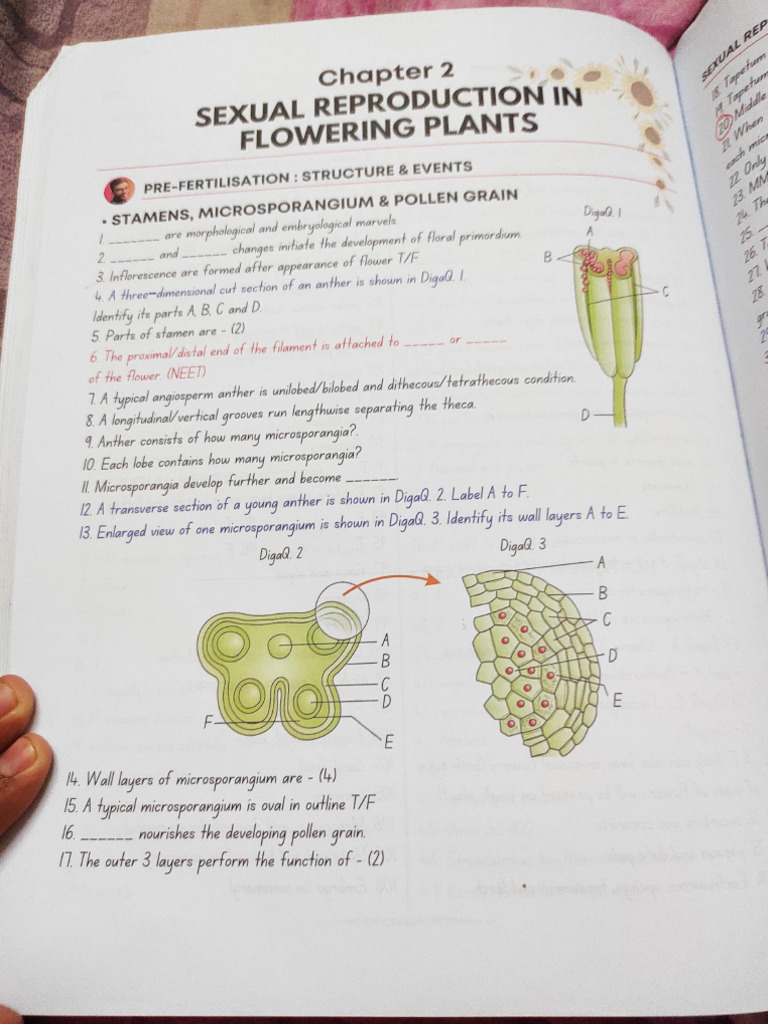 Chapter 2
SEXUAL REPRODUCTION IN
FLOWERING PLANTS
PRE-FERTILISATION : STRUCTURE & EVENTS
• STAMENS, MICROSPORANGIUM & POLLEN GRAIN
1. ________ are morphological and embryological marvels.
2. ______ and ______ changes initiate the development of floral primordium.
3. Inflorescence are formed after appearance of flower T/F
4. A three-dimensional cut section of an anther is shown in DigaQ. 1.
Identify its parts A, B, C and D.
5. Parts of stamen are - (2)
6. The proximal/distal end of the filament is attached to _____ or _____
of the flower. (NEET)
7. A typical angiosperm anther is unilobed/bilobed and dithecous/tetrathecous condition.
8. A longitudinal/vertical grooves run lengthwise separating the theca.
9. Anther consists of how many microsporangia?.
10. Each lobe contains how many microsporangia?
11. Microsporangia develop further and become ______.
12. A transverse section of a young anther is shown in DigaQ. 2. Label A to F.
13. Enlarged view of one microsporangium is shown in DigaQ. 3. Identify its wall layers A to E.
DigaQ. 1
A
B
C
D
DigaQ. 2
A
B
C
D
F
E
DigaQ. 3
A
B
C
D
E
14. Wall layers of microsporangium are - (4)
15. A typical microsporangium is oval in outline T/F
16. ______ nourishes the developing pollen grain.
17. The outer 3 layers perform the function of - (2)
SEXUAL REP
18. Tapetum
19. Tapetum
20. Middle
21. When
each micr
22. Only
23. MM
24. The
25.
26. T
27.
28.